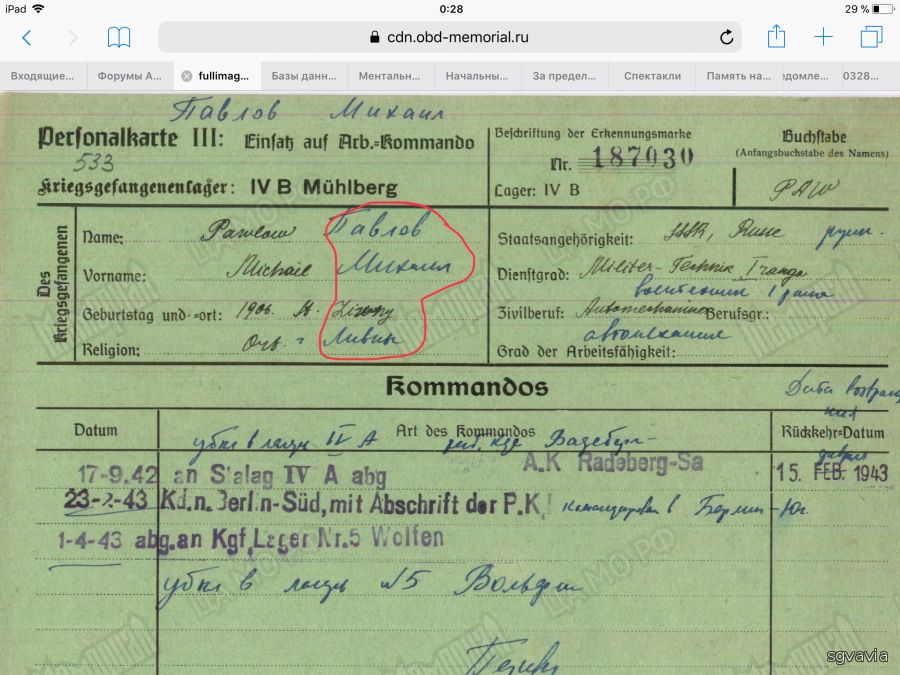 iPad
0:28
29 %
cdn.obd-memorial.ru
Входящие...
Форумы А...
fullimag...
Базы данн...
Ментальн...
Начальны...
За предел...
Спектакли
Память на...
едомле...
0328...
Павлов Михаил
Personalkarte III: Einsatz auf Arb.=Kommando
533
Kriegsgefangenenlager: IV B Mühlberg
Beschriftung der Erkennungsmarke
Nr. 187030
Lager: IV B
Buchstabe
(Anfangsbuchstabe des Namens)
PAW
Des Kriegsgefangenen
Name: Pawlow Павлов
Vorname: Michail Михаил
Geburtstag und =ort: 1906.
Religion: Orth. Ливны
Staatsangehörigkeit: Russe
Dienstgrad: Militer-Technik I
воентехник 1 ранга
Zivilberuf: Automechaniker Berufsgr.:
автомеханик
Grad der Arbeitsfähigkeit:
Kommandos
Дата
Datum
Art des Kommandos
Rückkehr=Datum
убыл в лагерь IV A
17-9.42 an Stalag IV A abg
A.K Radeberg-Sa
15. FEB. 1943
23-2-43 Kdn. Berlin-Süd, mit Abschrift der P.K.
командирован в Берлин-Юг
1-4-43 abg.an Kgf.Lager Nr.5 Wolfen
убыл в лагерь №5 Вольфен
sgvavia